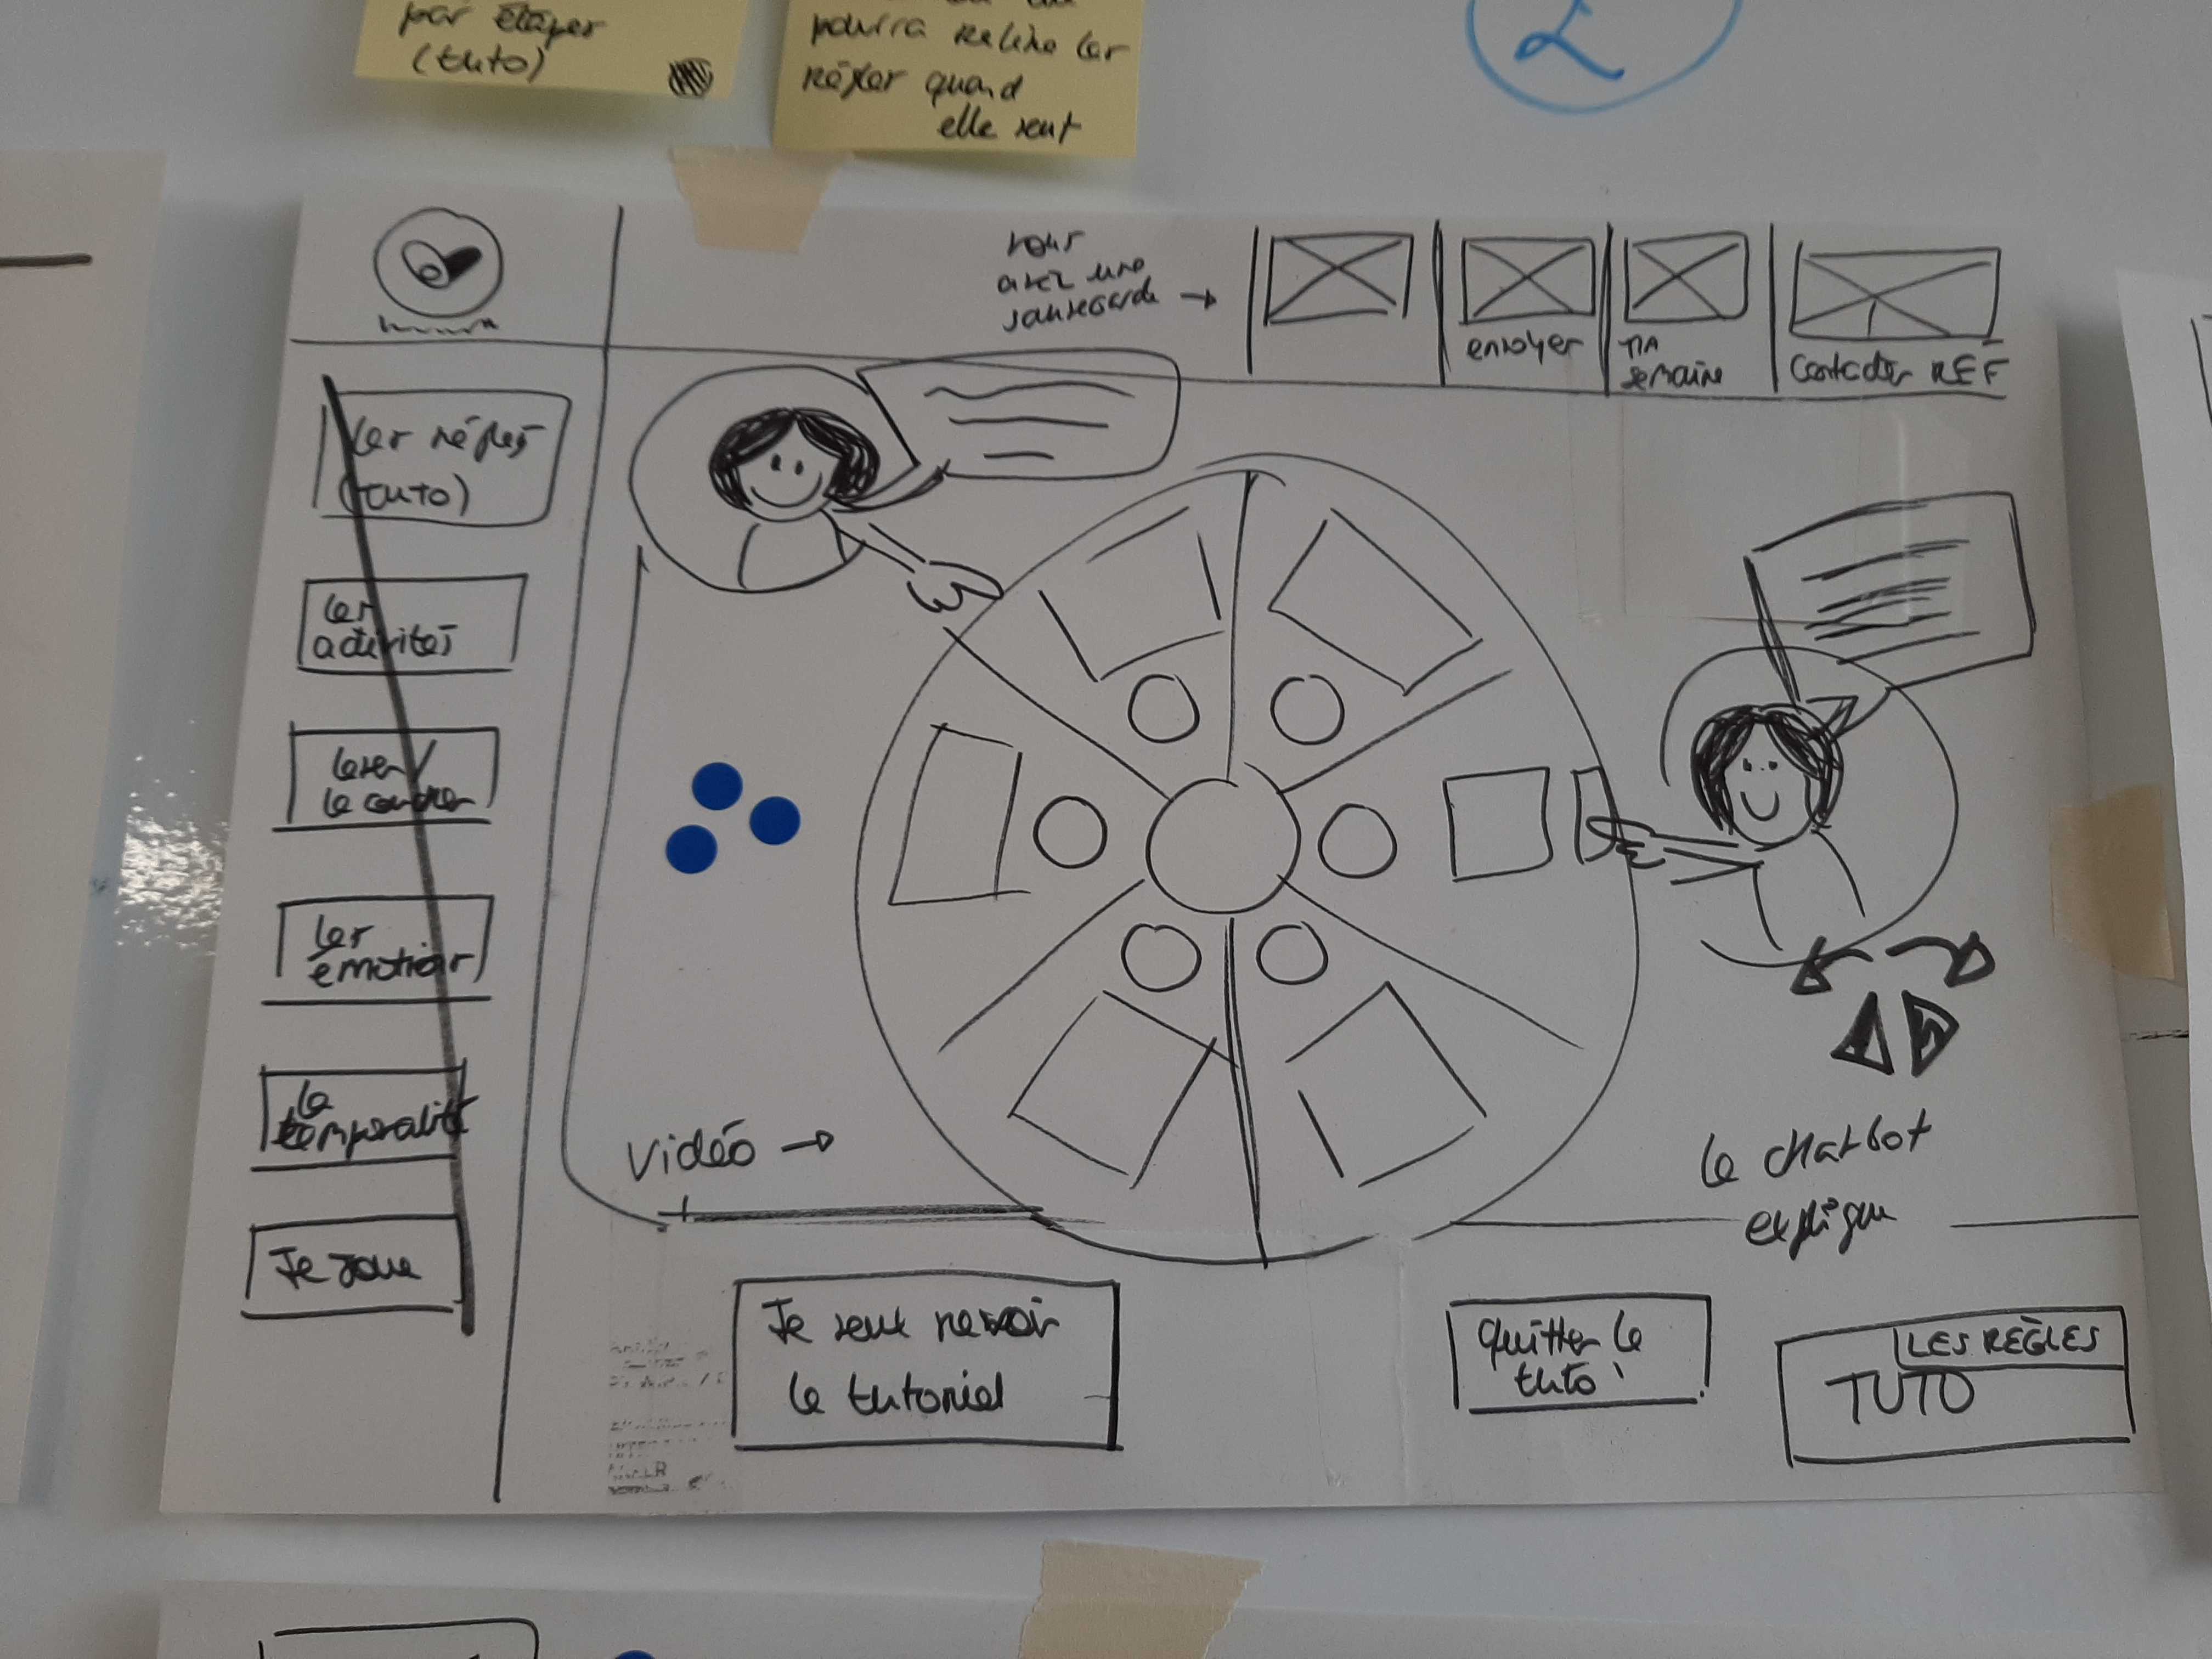 par étapes
(tuto)
pourra relire les
règles quand
elle veut
vous
avez une
sauvegarde →
envoyer
MA
semaine
Contacter REF
Les règles
(tuto)
Les
activités
Les
émotions
La
temporalité
Je joue
Vidéo →
Le chatbot
explique
Je veux revoir
le tutoriel
Quitter le
tuto
LES RÈGLES
TUTO